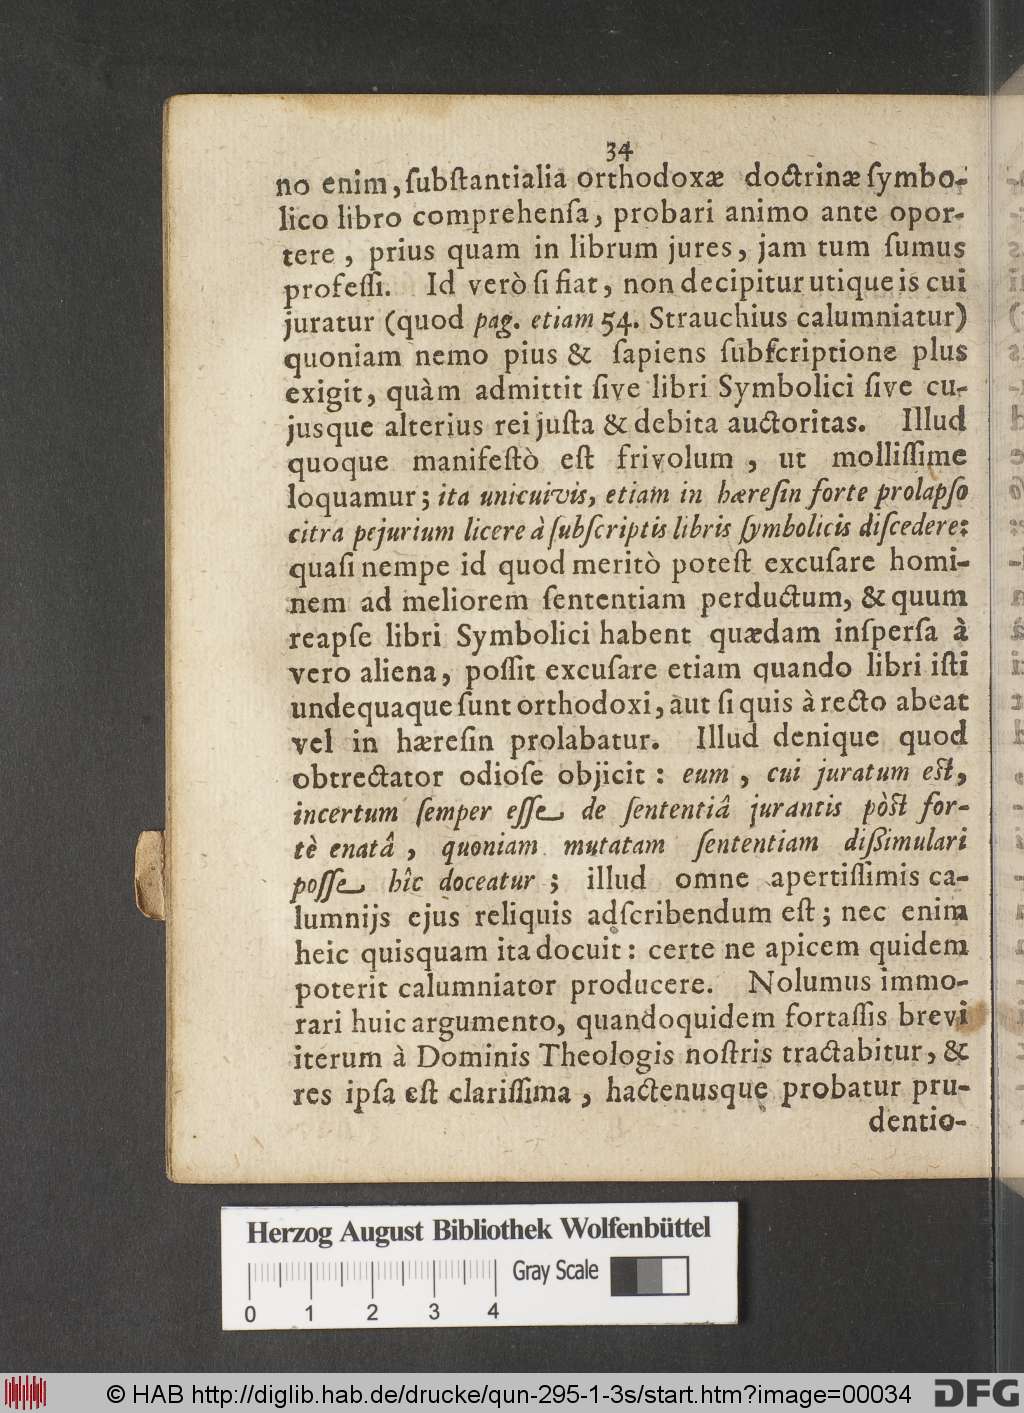 34
no enim, ſubſtantialia orthodoxæ doctrinæ ſymbo-
lico libro comprehenſa, probari animo ante opor-
tere , prius quam in librum jures, jam tum ſumus
profeſſi. Id verò ſi fiat, non decipitur utique is cui
juratur (quod pag. etiam 54. Strauchius calumniatur)
quoniam nemo pius & ſapiens ſubſcriptione plus
exigit, quàm admittit ſive libri Symbolici ſive cu-
jusque alterius rei juſta & debita auctoritas. Illud
quoque manifeſtò eſt frivolum , ut molliſſime
loquamur; ita unicuivis, etiam in hæreſin forte prolapſo
citra pejurium licere à ſubſcriptis libris ſymbolicis diſcedere:
quaſi nempe id quod meritò poteſt excuſare homi-
nem ad meliorem ſententiam perductum, & quum
reapſe libri Symbolici habent quædam inſperſa à
vero aliena, poſſit excuſare etiam quando libri iſti
undequaque ſunt orthodoxi, aut ſi quis à recto abeat
vel in hæreſin prolabatur. Illud denique quod
obtrectator odioſe objicit : eum , cui juratum eſt,
incertum ſemper eſſe de ſententiâ jurantis pòſt for-
tè enatâ , quoniam mutatam ſententiam diſſimulari
poſſe hîc doceatur ; illud omne apertiſſimis ca-
lumnijs ejus reliquis adſcribendum eſt; nec enim
heic quisquam ita docuit: certe ne apicem quidem
poterit calumniator producere. Nolumus immo-
rari huic argumento, quandoquidem fortaſſis brevi
iterum à Dominis Theologis noſtris tractabitur, &
res ipſa eſt clariſſima , hactenusque probatur pru-
dentio-
Herzog August Bibliothek Wolfenbüttel
Gray Scale
0 1 2 3 4
© HAB http://diglib.hab.de/drucke/qun-295-1-3s/start.htm?image=00034
DFG